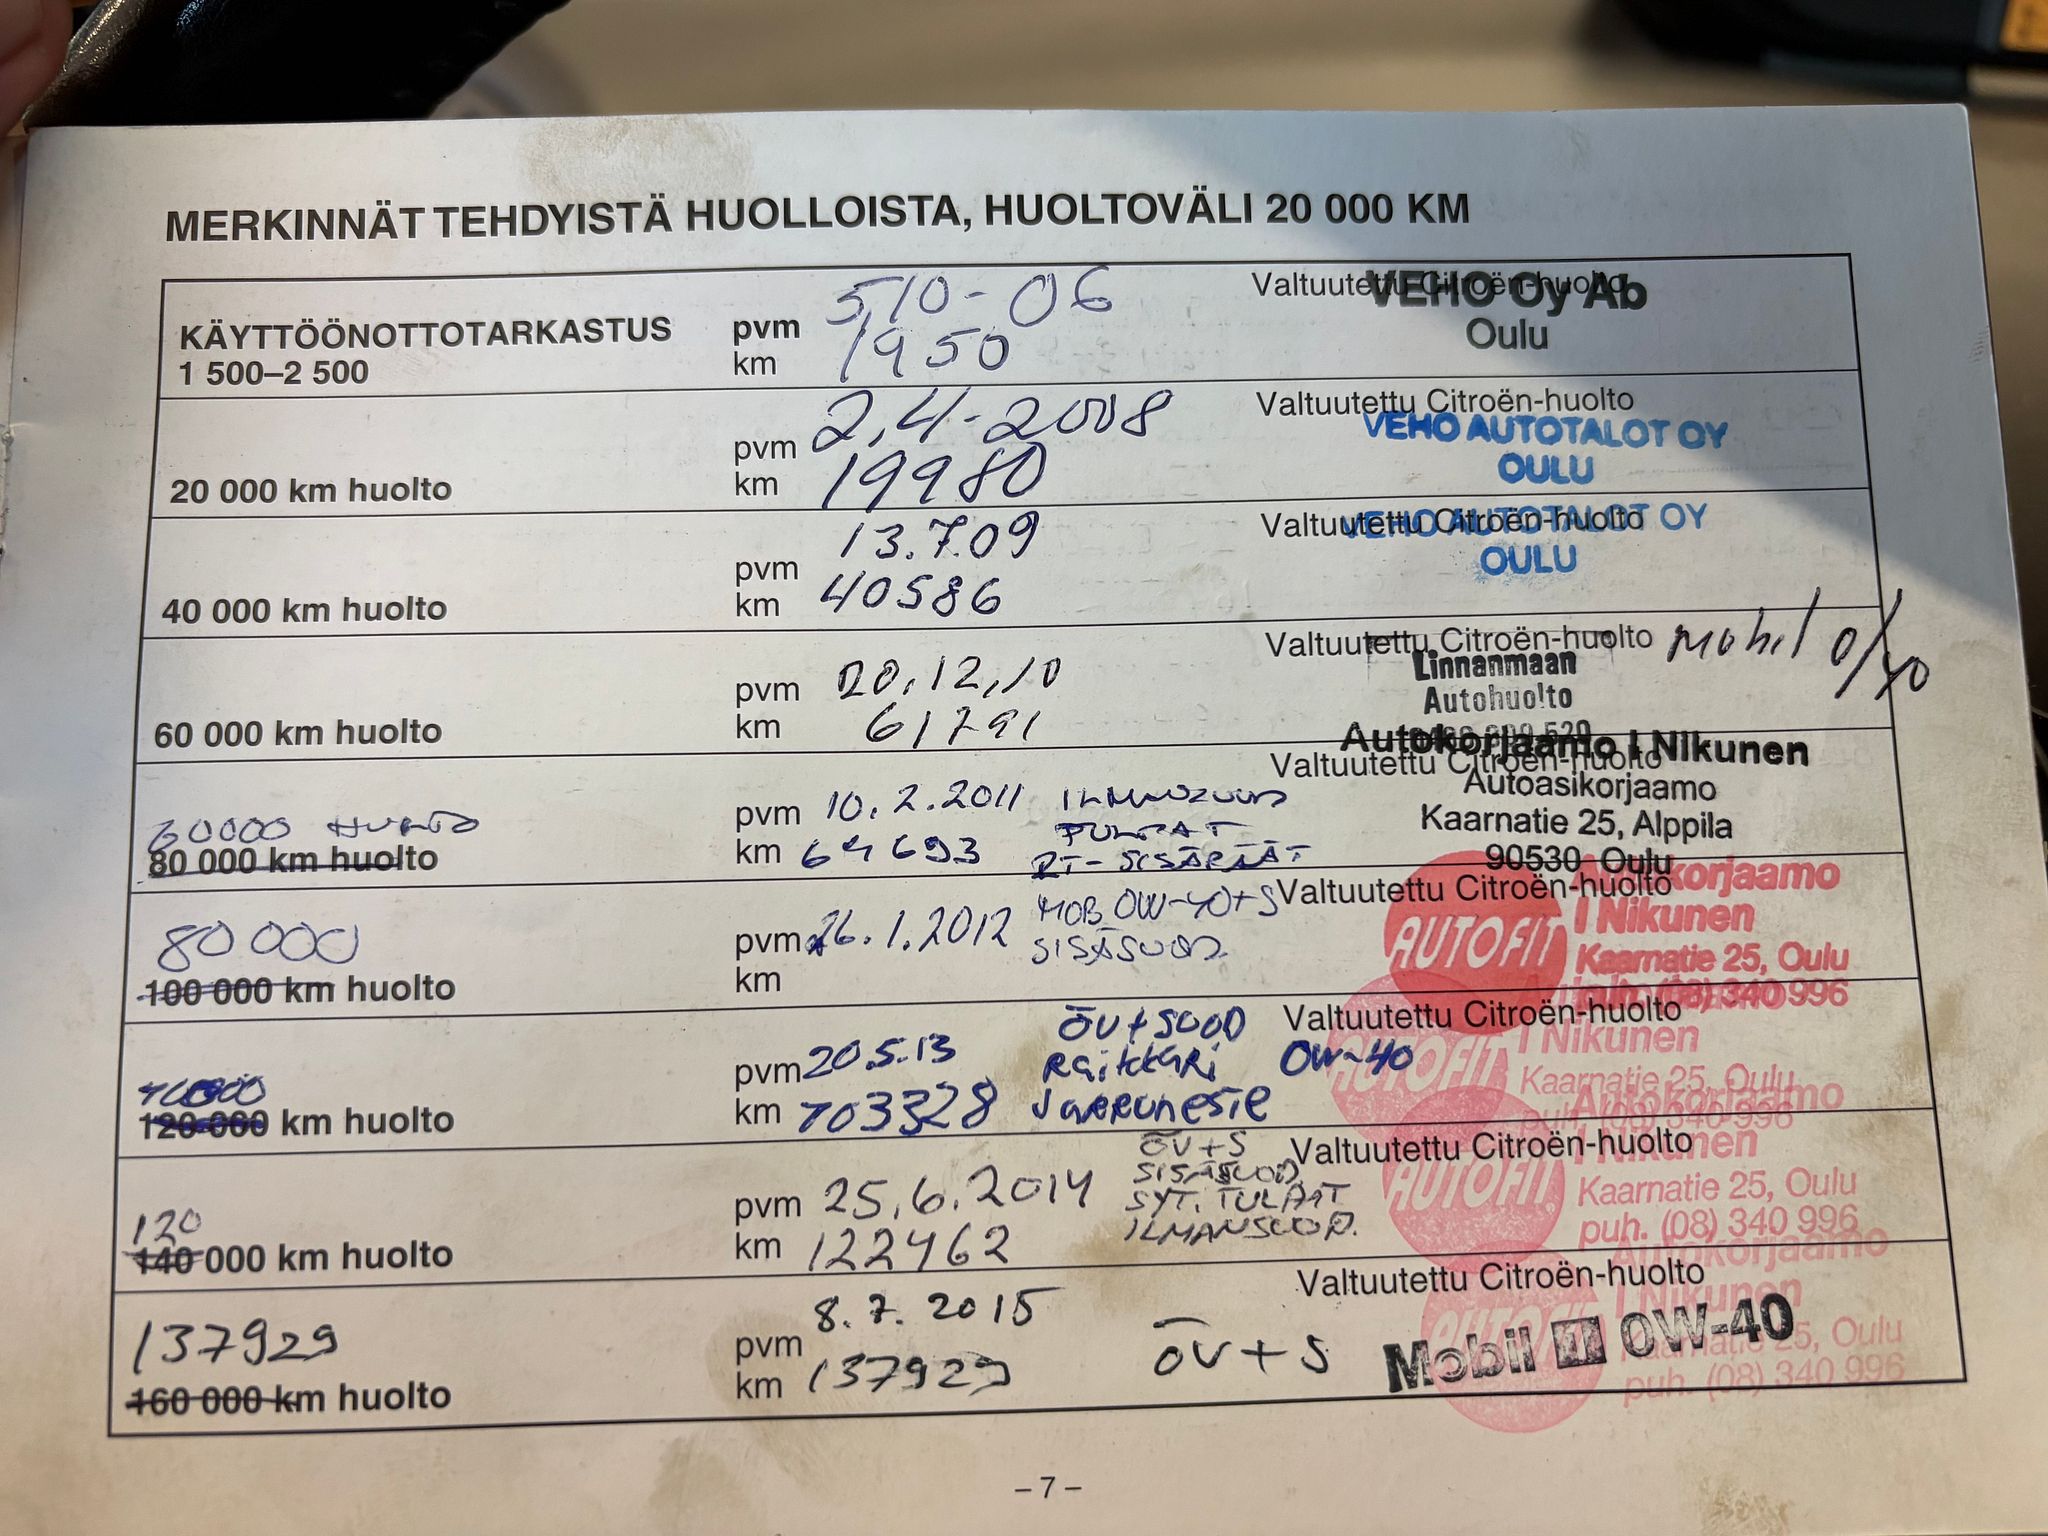 MERKINNÄT TEHDYISTÄ HUOLLOISTA, HUOLTOVÄLI 20 000 KM
KÄYTTÖÖNOTTOTARKASTUS
1 500–2 500
pvm 5/10-06
km 1950
Valtuutettu Citroën-huolto
VEHO Oy Ab
Oulu
20 000 km huolto
pvm 2.4-2008
km 19980
Valtuutettu Citroën-huolto
VEHO AUTOTALOT OY
OULU
40 000 km huolto
pvm 13.7.09
km 40586
Valtuutettu Citroën-huolto
VEHO AUTOTALOT OY
OULU
60 000 km huolto
pvm 20.12.10
km 61791
Valtuutettu Citroën-huolto
Mobil 0/40
Linnanmaan
Autohuolto
60000 HUOLTO
80 000 km huolto
pvm 10.2.2011
km 64693
TULPAT
Valtuutettu Citroën-huolto
Autokorjaamo I Nikunen
Autoasikorjaamo
Kaarnatie 25, Alppila
90530 Oulu
80 000
100 000 km huolto
pvm 26.1.2012
km
MOB 0W-40+S
SISÄSUOD
Valtuutettu Citroën-huolto
AUTOFIT
Autokorjaamo
I Nikunen
Kaarnatie 25, Oulu
puh. (08) 340 996
120 000 km huolto
pvm 20.5.13
km 103328
ÖV+SUOD
Raitisari
Jarruneste
Valtuutettu Citroën-huolto
0W-40
AUTOFIT
I Nikunen
Kaarnatie 25, Oulu
puh. (08) 340 996
120
140 000 km huolto
pvm 25.6.2014
km 122462
ÖV+S
SISÄSUOD,
SYT. TULPAT
ILMANSUOD.
Valtuutettu Citroën-huolto
AUTOFIT
Autokorjaamo
I Nikunen
Kaarnatie 25, Oulu
puh. (08) 340 996
137929
160 000 km huolto
pvm 8.7.2015
km 137929
ÖV+S
Valtuutettu Citroën-huolto
Mobil 1 0W-40
AUTOFIT
Autokorjaamo
I Nikunen
Kaarnatie 25, Oulu
puh. (08) 340 996
– 7 –